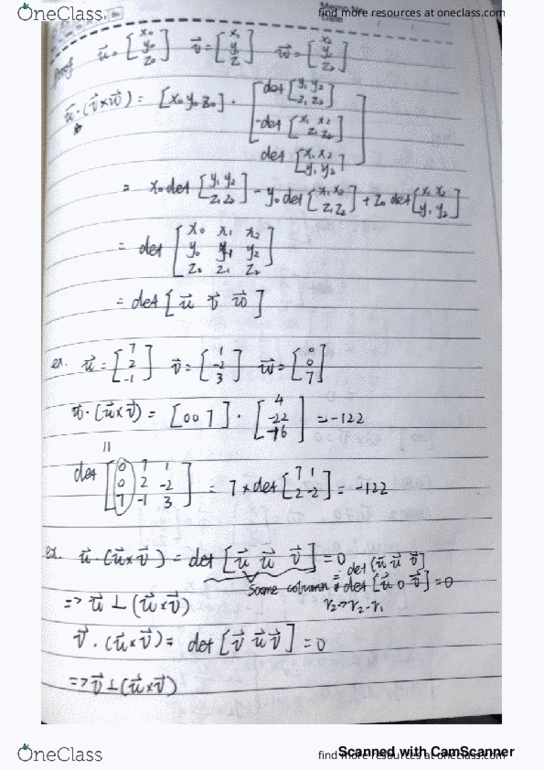 OneClass
find more resources at oneclass.com
Proof u⃗=[x₀ y₀ z₀] v⃗=[x₁ y₁ z₁] w⃗=[x₂ y₂ z₂]
u⃗·(v⃗×w⃗) = [x₀ y₀ z₀] · [det[y₁ y₂ z₁ z₂] -det[x₁ x₂ z₁ z₂] det[x₁ x₂ y₁ y₂]]
= x₀det[y₁ y₂ z₁ z₂] - y₀det[x₁ x₂ z₁ z₂] + z₀ det[x₁ x₂ y₁ y₂]
= det [x₀ x₁ x₂ y₀ y₁ y₂ z₀ z₁ z₂]
= det [u⃗ v⃗ w⃗]
ex. u⃗=[7 2 -1] v⃗=[1 -2 3] w⃗=[0 0 7]
w⃗·(u⃗×v⃗) = [0 0 7] · [4 -22 -16] = -122
||
det [0 7 1 0 2 -2 7 -1 3] = 7×det[7 1 2 -2] = -122
ex. u⃗·(u⃗×v⃗) = det[u⃗ u⃗ v⃗] = 0
Same column
det[u⃗ u⃗ v⃗]
= det[u⃗ 0 v⃗] = 0
r₂→r₂-r₁
=> u⃗ ⊥ (u⃗×v⃗)
v⃗·(u⃗×v⃗) = det[v⃗ u⃗ v⃗] = 0
=> v⃗ ⊥ (u⃗×v⃗)
OneClass
find more resources at oneclass.com
Scanned with CamScanner